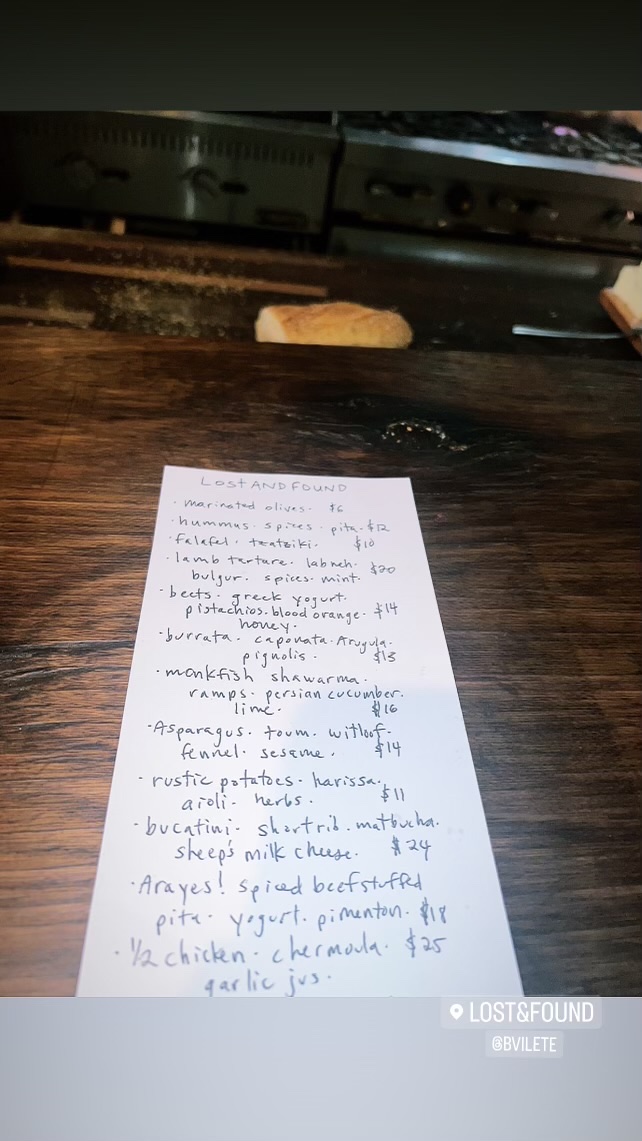 LOST AND FOUND
· marinated olives · $6
· hummus · spices · pita · $12
· falafel · tzatziki · $10
· lamb tartare · labneh · $20
bulgur · spices · mint ·
· beets · greek yogurt ·
pistachios · blood orange · $14
honey ·
· burrata · caponata · Arugula ·
pignolis · $13
· monkfish shawarma ·
ramps · persian cucumber ·
lime · $16
· Asparagus · toum · witloof ·
fennel · sesame · $14
· rustic potatoes · harissa ·
aioli · herbs · $11
· bucatini · shortrib · matbucha ·
sheep's milk cheese · $24
· Arayes! spiced beef stuffed
pita · yogurt · pimenton · $18
· 1/2 chicken · chermoula · $25
garlic jus ·
LOST&FOUND
@BVILETE